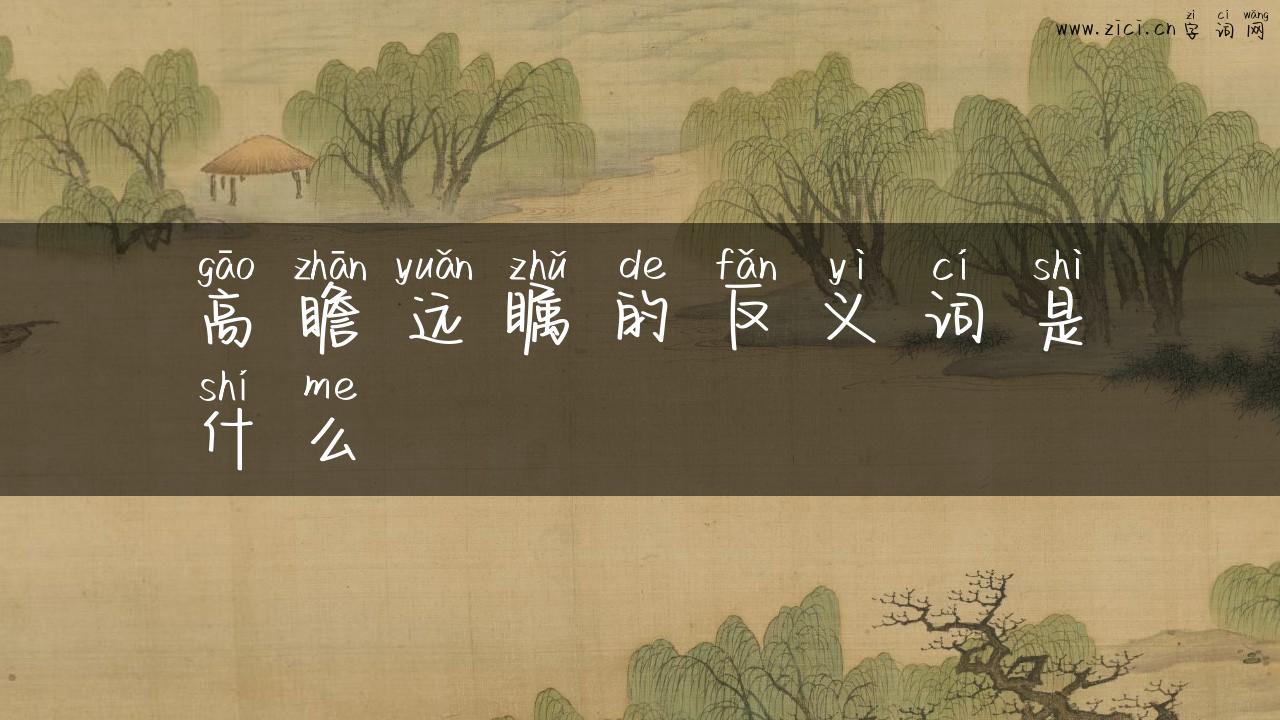 zì cí wǎng
www.zici.cn 字词网
gāo zhān yuǎn zhǔ de fǎn yì cí shì
高瞻远瞩的反义词是
shí me
什么